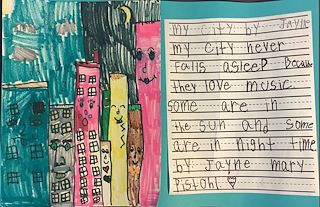 my city by Jayne
my city never
falls asleep Because
they love music.
some are in
the sun and some
are in night time
by Jayne mary
Pistohl